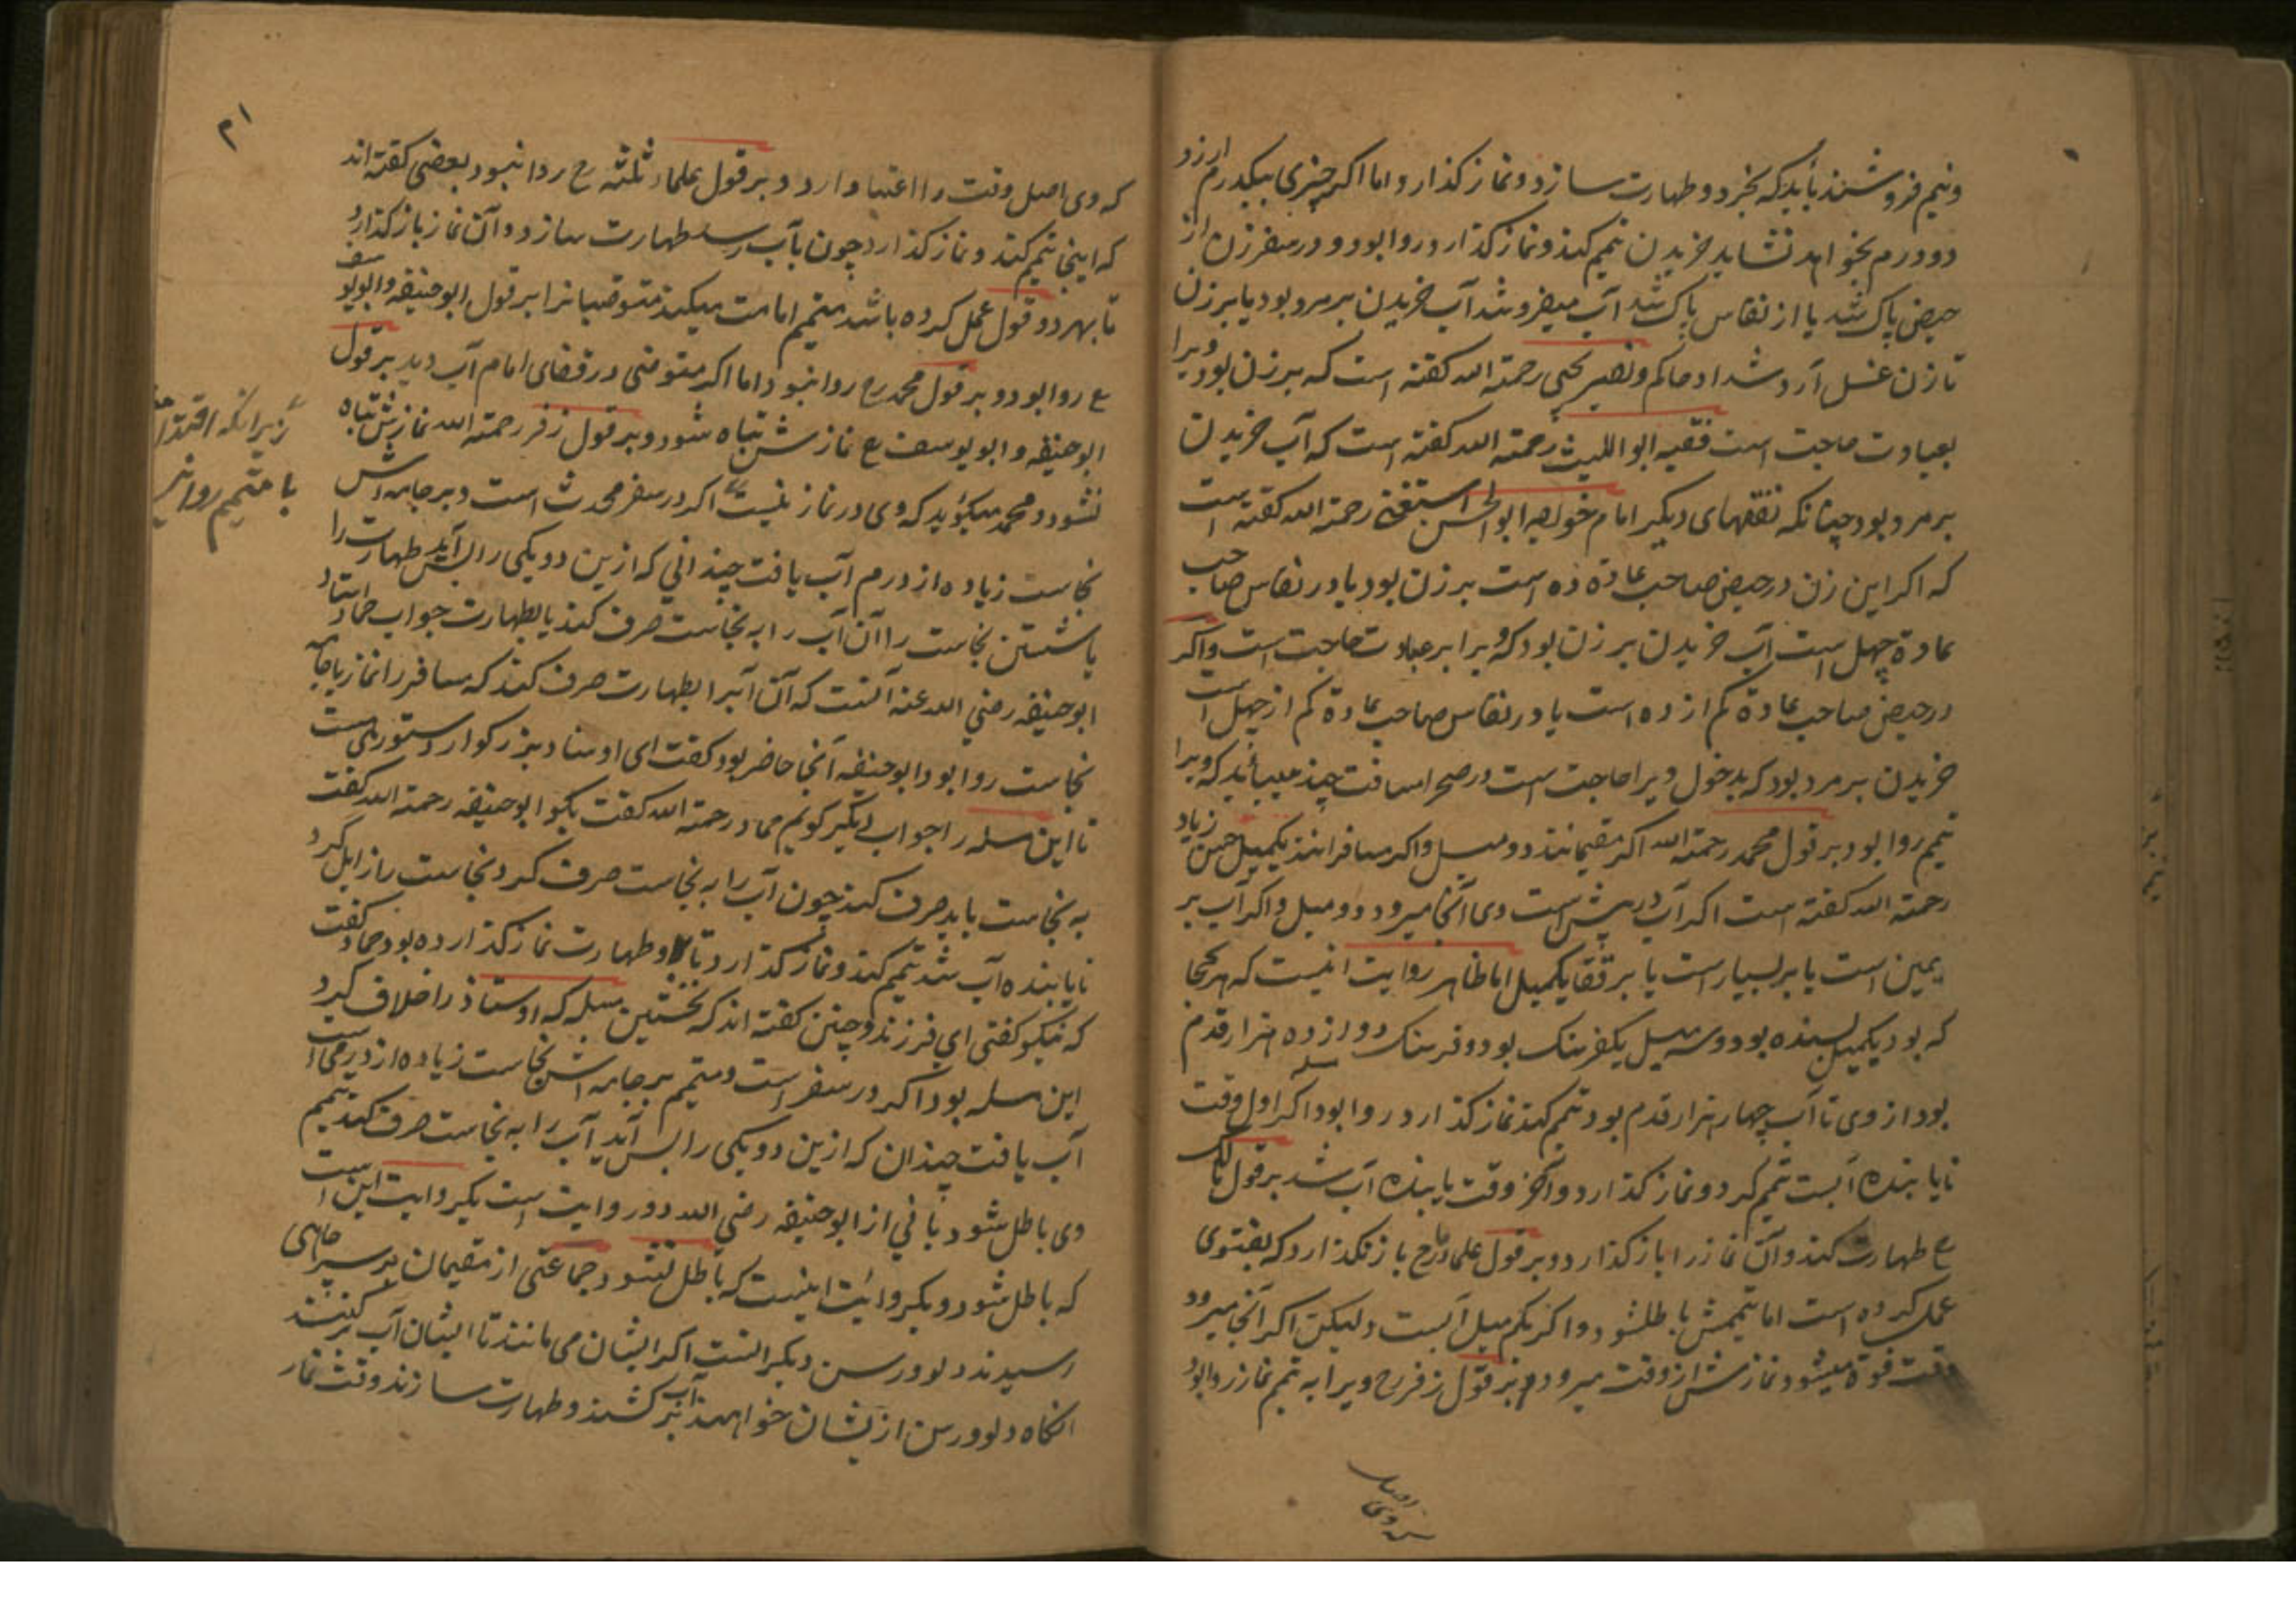 ونیم فروشند بآید که بخرد و طهارت سازد و نماز کذارد و اما اکر چیزی بیکدرم ارزد
دو درم بخواهد نشاید خریدن تیمم کند و نماز کذارد روا بود و در سفر زن از
حیض پاک شد یا از نفاس پاک شد آب میفروشد آب خریدن بر مرد بود یا بر زن
تا زن غسل آرد شداد حاکم و نصیر یحیی رحمته الله کفته است که بر زن بود ویرا
بعبادت حاجت است فقیه ابو اللیث رحمته الله کفته است که آب خریدن
بر مرد بود چنانکه نفقهای دیکر امام خواجه ابو الحسن استغنی رحمته الله کفته است
که اکر این زن در حیض صاحب عادة ده است بر زن بود یا در نفاس صاحب
عادة چهل است آب خریدن بر زن بود که ویرا بر عبادت حاجت است و اکر
در حیض صاحب عادة کم از ده است یا در نفاس صاحب عادة کم از چهل است
خریدن بر مرد بود که بدخول ویرا حاجت است در صحرا مسافت چند میباید که ویرا
تیمم روا بود بر قول محمد رحمته الله اکر مقیمانند دو میل و اکر مسافرانند یکمیل حسن زیاد
رحمته الله کفته است اکر آب در پیش است وی آنجا میرود دو میل و اکر آب بر
یمین است یا بر یسار است یا بر قفا یکمیل اما ظاهر روایت اینست که هر کجا
که بود یکمیل بسنده بود و سه میل یکفرسنک بود و فرسنک دوازده هزار قدم
بود از وی تا آب چهار هزار قدم بود تیمم کند نماز کذارد روا بود اکر اول وقت
نایابنده آبست تیمم کرد و نماز کذارد و آخر وقت یابنده آب شد بر قول مالک
ع طهارت کند و آن نماز را باز کذارد و بر قول علماء ما رح باز نکذارد که بفتوی
عمل کرده است اما تیممش باطلشود و اکر بکم میل آبست ولیکن اکر آنجا میرود
وقت فوة میشود نمازش از وقت میرود بر قول زفر رح ویرا به تیمم نماز روا بود
که وی اصل
که وی اصل وقت را اعتبار دارد و بر قول علماء ثلثه رح روا نبود بعضی کفته اند
که اینجا تیمم کند و نماز کذارد چون بآب رسد طهارت سازد و آن نماز باز کذارد
تا بهر دو قول عمل کرده باشد متیمم امامت میکند متوضیانرا بر قول ابو حنیفه و ابو یوسف
ع روا بود و بر قول محمد رح روا نبود اما اکر متوضی در قفای امام آب دید بر قول
ابو حنیفه و ابو یوسف ع نمازش تباه شود و بر قول زفر رحمته الله نمازش تباه
نشود و محمد میکوید که وی در نماز نیست اکر در سفر محدث است و بر جامه اش
نجاست زیاده از درم آب یافت چندانی که ازین دو یکی را بس آید طهارت را
یا شستن نجاست را آن آب را به نجاست صرف کند یا بطهارت جواب حماد استاد
ابو حنیفه رضی الله عنه آنست که آن آبرا بطهارت صرف کند که مسافر را نماز با جامه
نجاست روا بود ابو حنیفه آنجا حاضر بود کفت ای اوستاد بزرکوار دستوری هست
تا این مسله را جواب دیکر کویم حماد رحمته الله کفت بکو ابو حنیفه رحمته الله کفت
به نجاست باید صرف کند چون آب را به نجاست صرف کرد نجاست را زایل کرد
نایابنده آب شد تیمم کند و نماز کذارد تا با دو طهارت نماز کذارده بود حماد کفت
که نیکو کفتی ای فرزند و چنین کفته اند که نخستین مسله که اوستاذ را خلاف کرد
این مسله بود اکر در سفر است و متیمم بر جامه اش نجاست زیاده از درمی است
آب یافت چندان که ازین دو یکی را بس آید آب را به نجاست صرف کند تیمم
وی باطل شود یا نی از ابو حنیفه رضی الله دو روایت است یکروایت این است
که باطل شود و دیکر وایت اینست که باطل نشود جماعتی از مقیمان بر سر چاهی
رسیدند دلو و رسن دیکرانست اکر ایشان می مانند تا ایشان آب بر کشند
انکاه دلو و رسن از یشان خواهند آب بر کشند و طهارت سازند وقت نماز
۲۱
زیرانکه اقتدا
با متیمم روا نیر